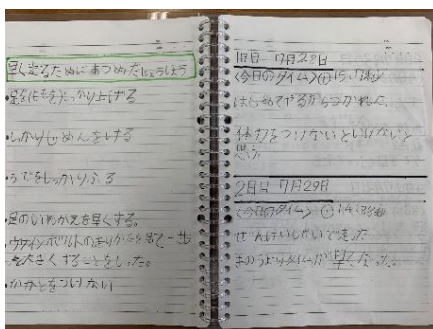 早く走るためにあつめたじょうほう
・足(もも)をしっかり上げる
・しっかりじめんをける
・うでをしっかりふる
・足のいれかえを早くする。
・ウサインボルトの走りかたを見て一歩
を大きくすることをしった。
・かかとをつけない
1日目 7月28日
〈今日のタイム〉
はじめてやるからつかれた。
体力をつけないといけないと
思う。
2日目 7月29日
〈今日のタイム〉
ぜんけいしせいで走った
きのうよりタイムが早くなった。